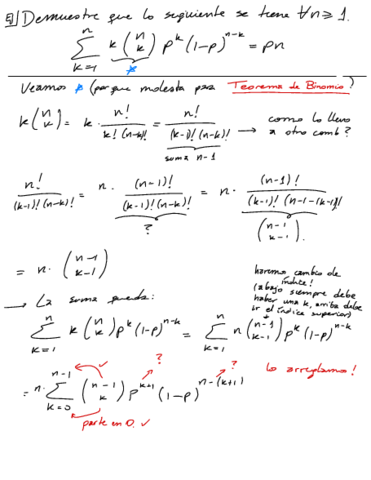 5) Demuestre que lo siguiente se tiene ∀n ≥ 1.
\sum_{k=1}^{n} k \binom{n}{k} p^k (1-p)^{n-k} = pn
Veamos * (porque molesta para Teorema de Binomio)
k \binom{n}{k} = k \cdot \frac{n!}{k!(n-k)!} = \frac{n!}{(k-1)!(n-k)!} → como lo llevo a otro comb?
suma n-1
\frac{n!}{(k-1)!(n-k)!} = n \cdot \frac{(n-1)!}{(k-1)!(n-k)!} = n \cdot \frac{(n-1)!}{(k-1)!(n-1-(k-1))!}
? \binom{n-1}{k-1}.
= n \cdot \binom{n-1}{k-1}
haremos cambio de
índice!
(abajo siempre debe
haber una k, arriba debe
ir el índice superior)
→ La suma queda:
\sum_{k=1}^{n} k \binom{n}{k} p^k (1-p)^{n-k} = \sum_{k=1}^{n} n \binom{n-1}{k-1} p^k (1-p)^{n-k}
? ? Lo arreglamos!
= n \cdot \sum_{k=0}^{n-1} \binom{n-1}{k} p^{k+1} (1-p)^{n-(k+1)}
parte en 0. ✓